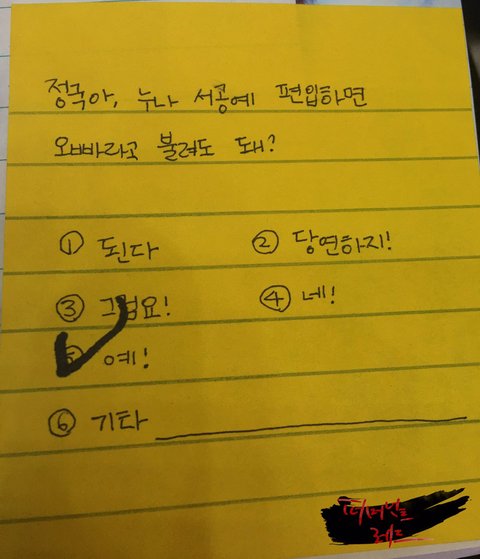 정국아, 누나 서공예 편입하면
오빠라고 불려도 돼?
① 된다 ② 당연하지!
③ 그럼요! ④ 네!
⑤ 예!
⑥ 기타
레드